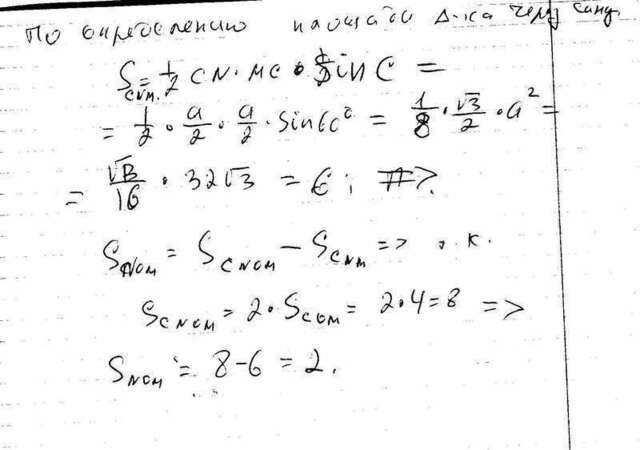 По определению площади Δ-ка через синус
S_{CNM.} = 1/2 CN · MC · sin C =
= 1/2 · a/2 · a/2 · sin60° = 1/8 · √3/2 · a² =
= √3/16 · 32√3 = 6 ;
S_{NOM} = S_{CNOM} − S_{CNM} => т.к.
S_{CNOM} = 2 · S_{COM} = 2 · 4 = 8 =>
S_{NOM} = 8 − 6 = 2.